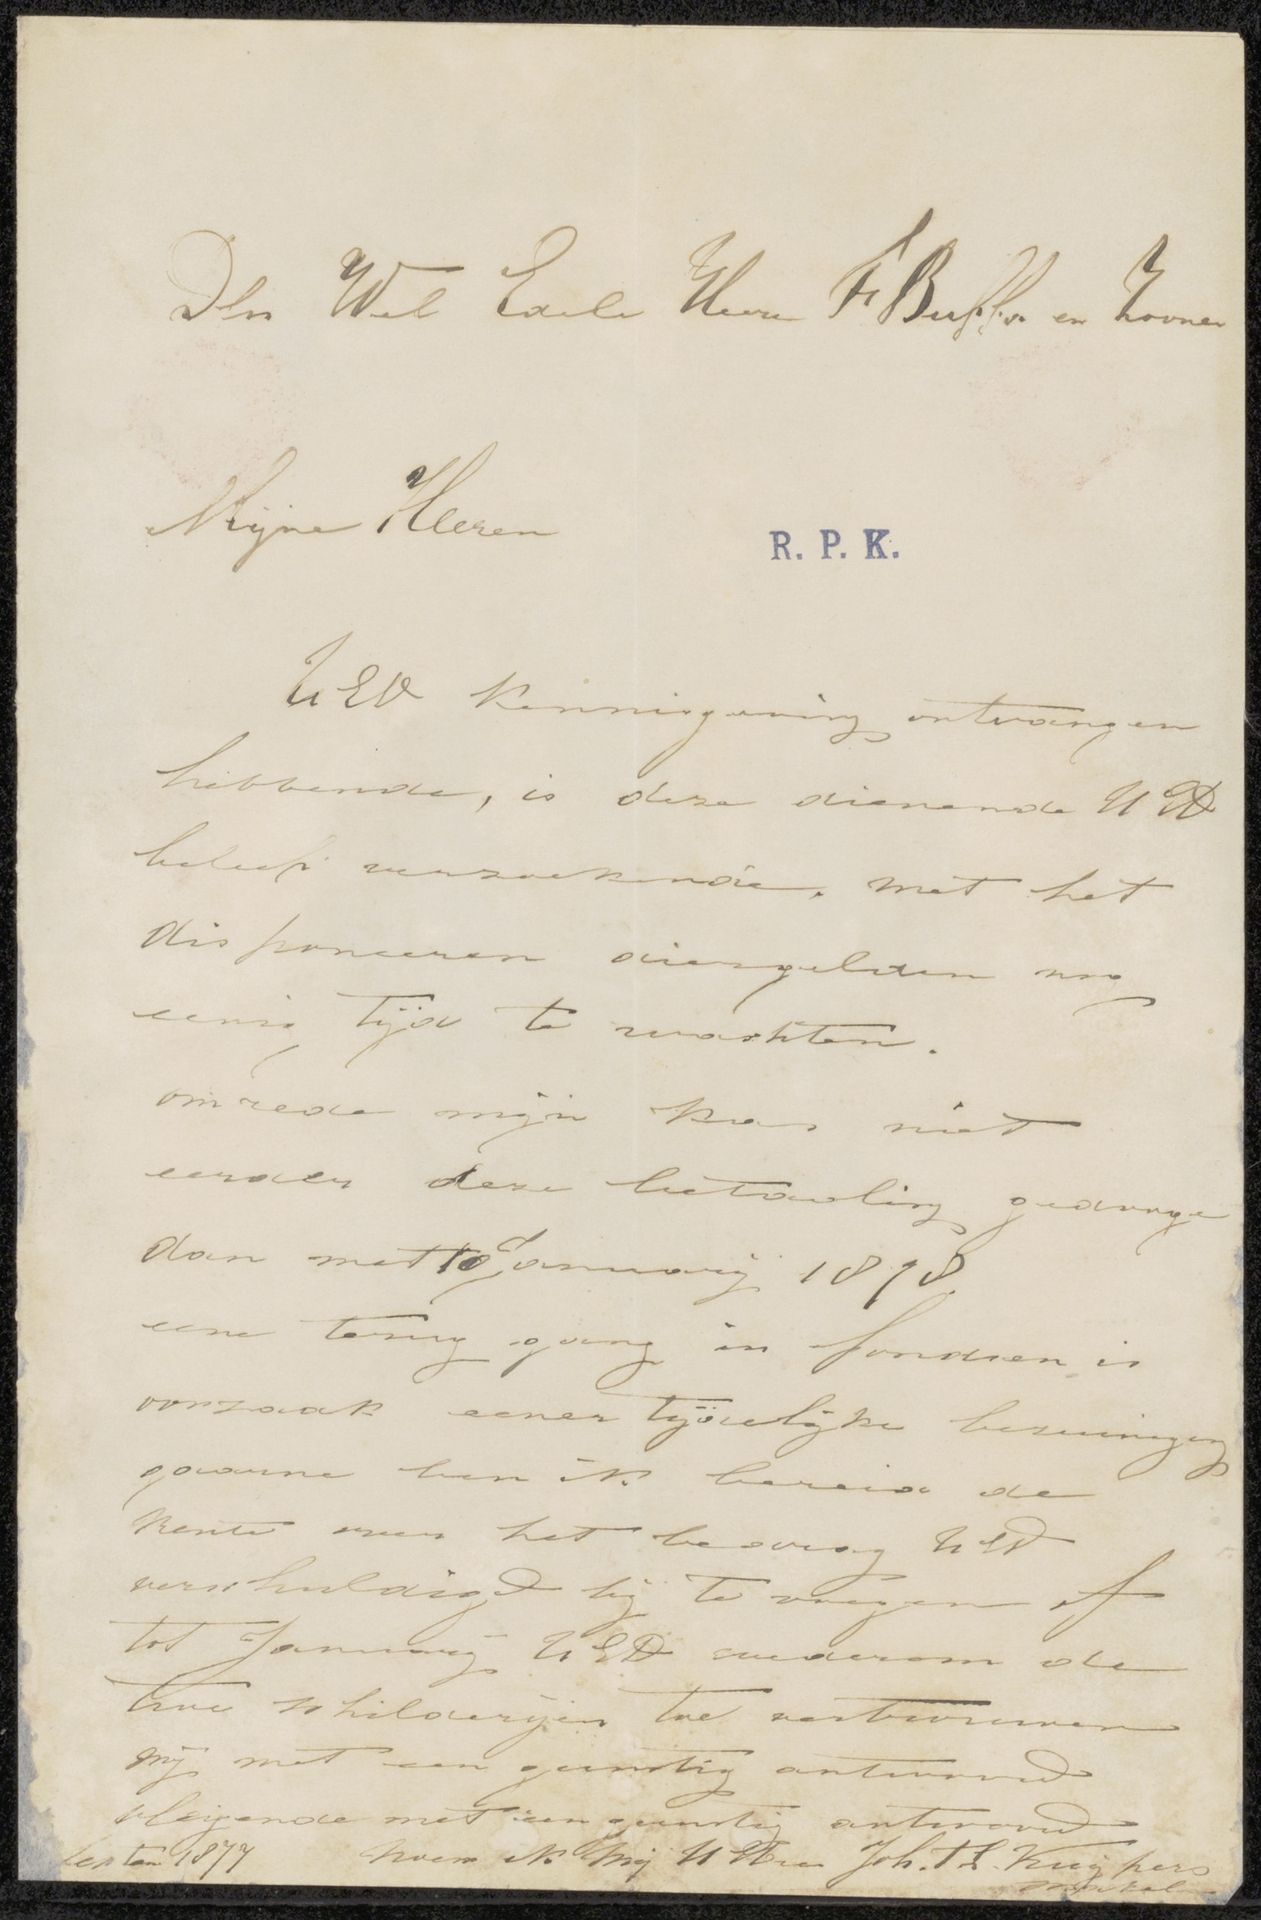 Den Wel Edele Heeren F Buffa en Zoonen
Mijne Heeren
R. P. K.
UEd kennisgeving ontvangen
hebbende, is deze dienende UEd
beleefd verzoekende, met het
disponeeren diergelden nog
eenig tijd te wachten.
omrede mijn kas niet
eerder deze betaaling gedooge
dan met 10 January 1878.
eene terug gang in fondsen is
oorzaak eener tijdelijke bezuiniging
gaarne ben ik bereid de
Rente over het bedrag UEd
verschuldigd bij te voegen of
tot January UEd wederom de
twe schilderijen toe vertrouwen
mij met een gunstig antwoord
vleijende met een gunstig antwoord
1877 noem ik mij Joh. Kuijpers